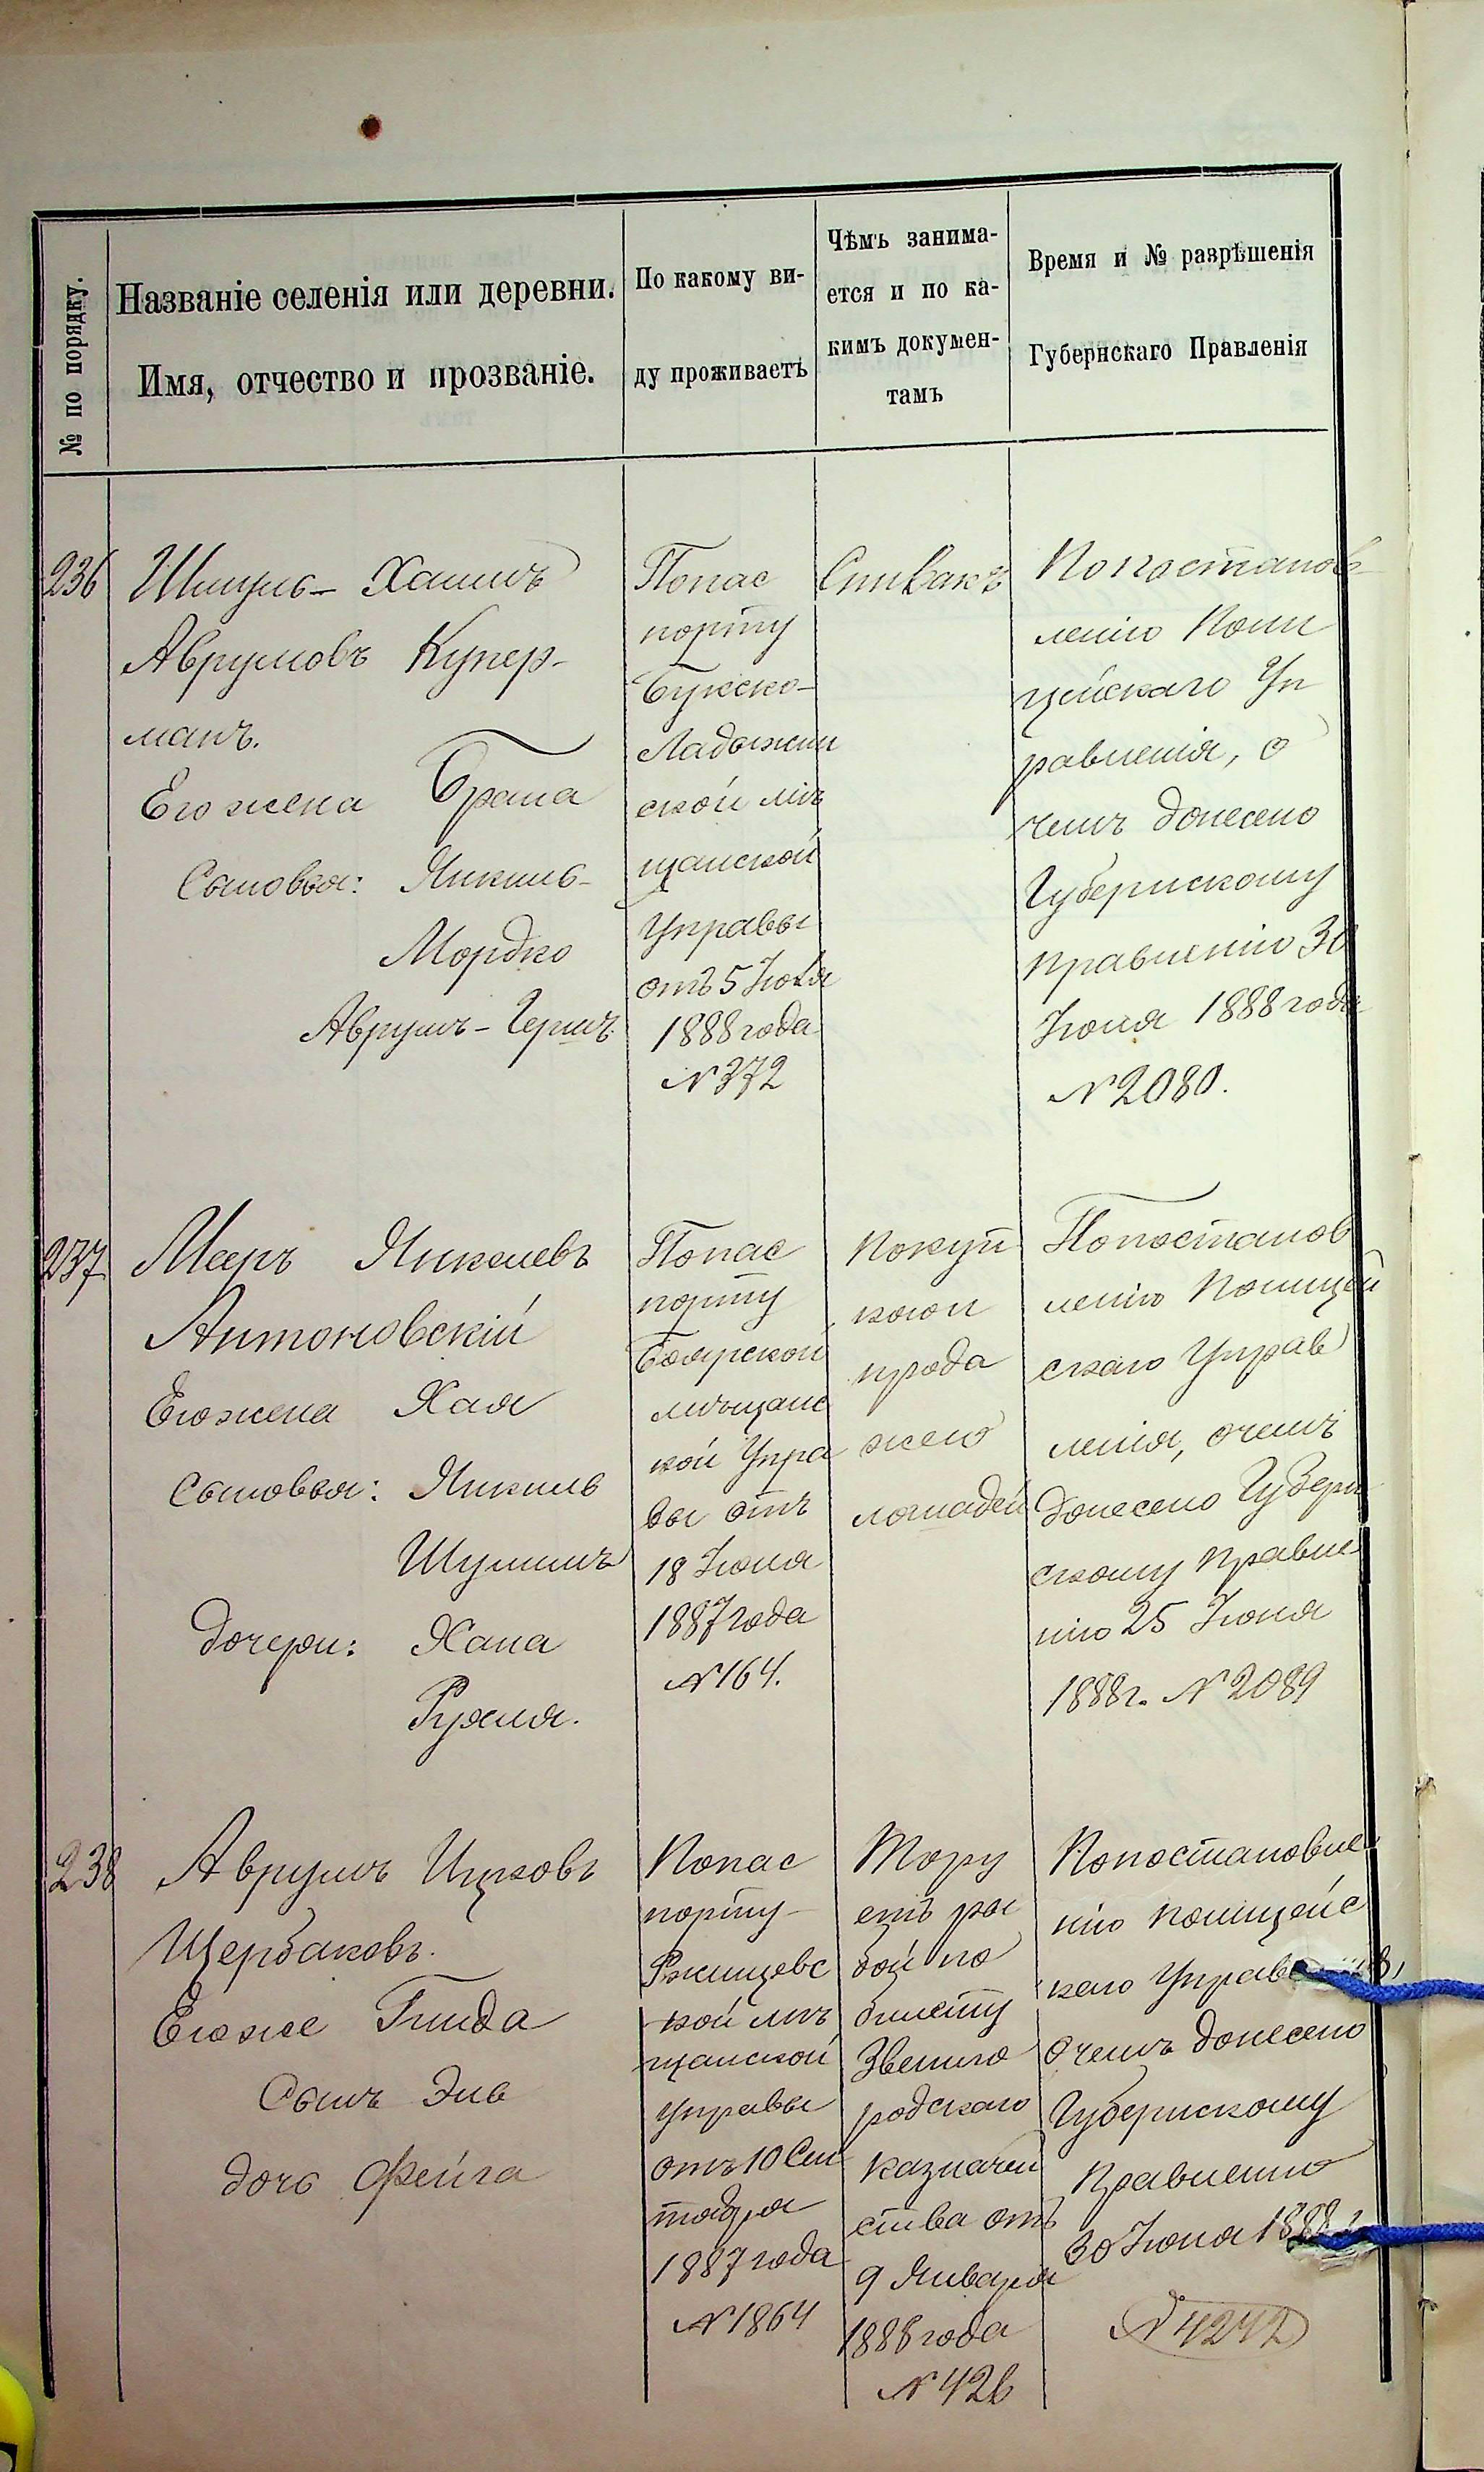 № по порядку.
Названіе селенія или деревни.
Имя, отчество и прозваніе.
По какому ви-
ду проживаетъ
Чѣмъ занима-
ется и по ка-
кимъ докумен-
тамъ
Время и № разрѣшенія
Губернскаго Правленія
236
Шмуль-Хаимъ
Аврумовъ Купер-
манъ.
Его жена Брана
Сыновья: Янкель-
Мордко
Аврумъ-Гершъ
По пас
порту
Букско-
Ладыжин
ской мѣ
щанской
Управы
отъ 5
1888 года
№ 372
Спивакъ
По постанов
ленію Поли
цейскаго Уп
равленія, о
чемъ донесено
Губернскому
правленію 30
Іюня 1888 года
№ 2080.
237
Мееръ Янкелевъ
Антоновскій
Его жена Хая
Сыновья: Янкель
Шулимъ
дочери: Хана
Рухля.
По пас
порту
Боярской
мѣщанс
кой Упра
вы отъ
18 Іюня
1887 года
№ 164.
Покуп
кою и
прода
жею
лошадей
По постанов
ленію Полицей
скаго Управ
ленія, о чемъ
донесено Губерн
скому Правле
нію 25 Іюня
1888 г. № 2089
238
Аврумъ Ицковъ
Щербаковъ.
Его же Гинда
Сынъ Эль
дочь Фейга
По пас
порту
Ржищевс
кой мѣ
щанской
управы
отъ 10 Сен
тября
1887 года
№ 1864
Торгу
етъ ры
бой по
билету
Звениго
родскаго
казначей
ства отъ
9 Января
1888 года
№ 426
По постановле
нію Полицейс
каго
о чемъ донесено
Губернскому
Правленію
30 Іюня 1888 г.
№ 4242